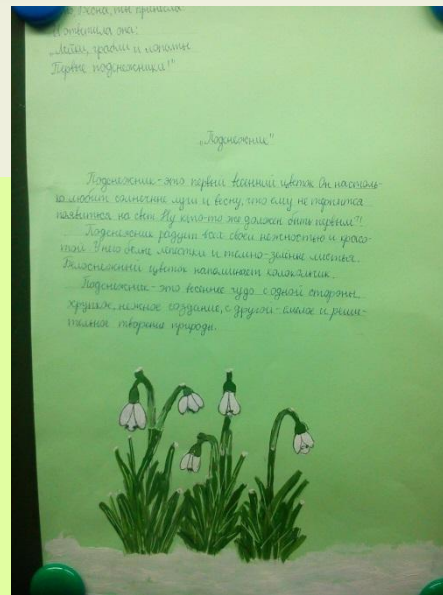 Весна, ты принесла
И ответила она:
„Метлы, грабли и лопаты
Первые подснежники!"
„Подснежник"
Подснежник - это первый весенний цветок. Он настоль-
ко любит солнечные лучи и весну, что ему не терпится
появиться на свет. Ну кто-то же должен быть первым?!
Подснежник радует всех своей нежностью и красо-
той. У него белые лепестки и тёмно-зелёные листья.
Белоснежный цветок напоминает колокольчик.
Подснежник - это весеннее чудо с одной стороны
хрупкое, нежное создание, с другой - смелое и реши-
тельное творение природы.